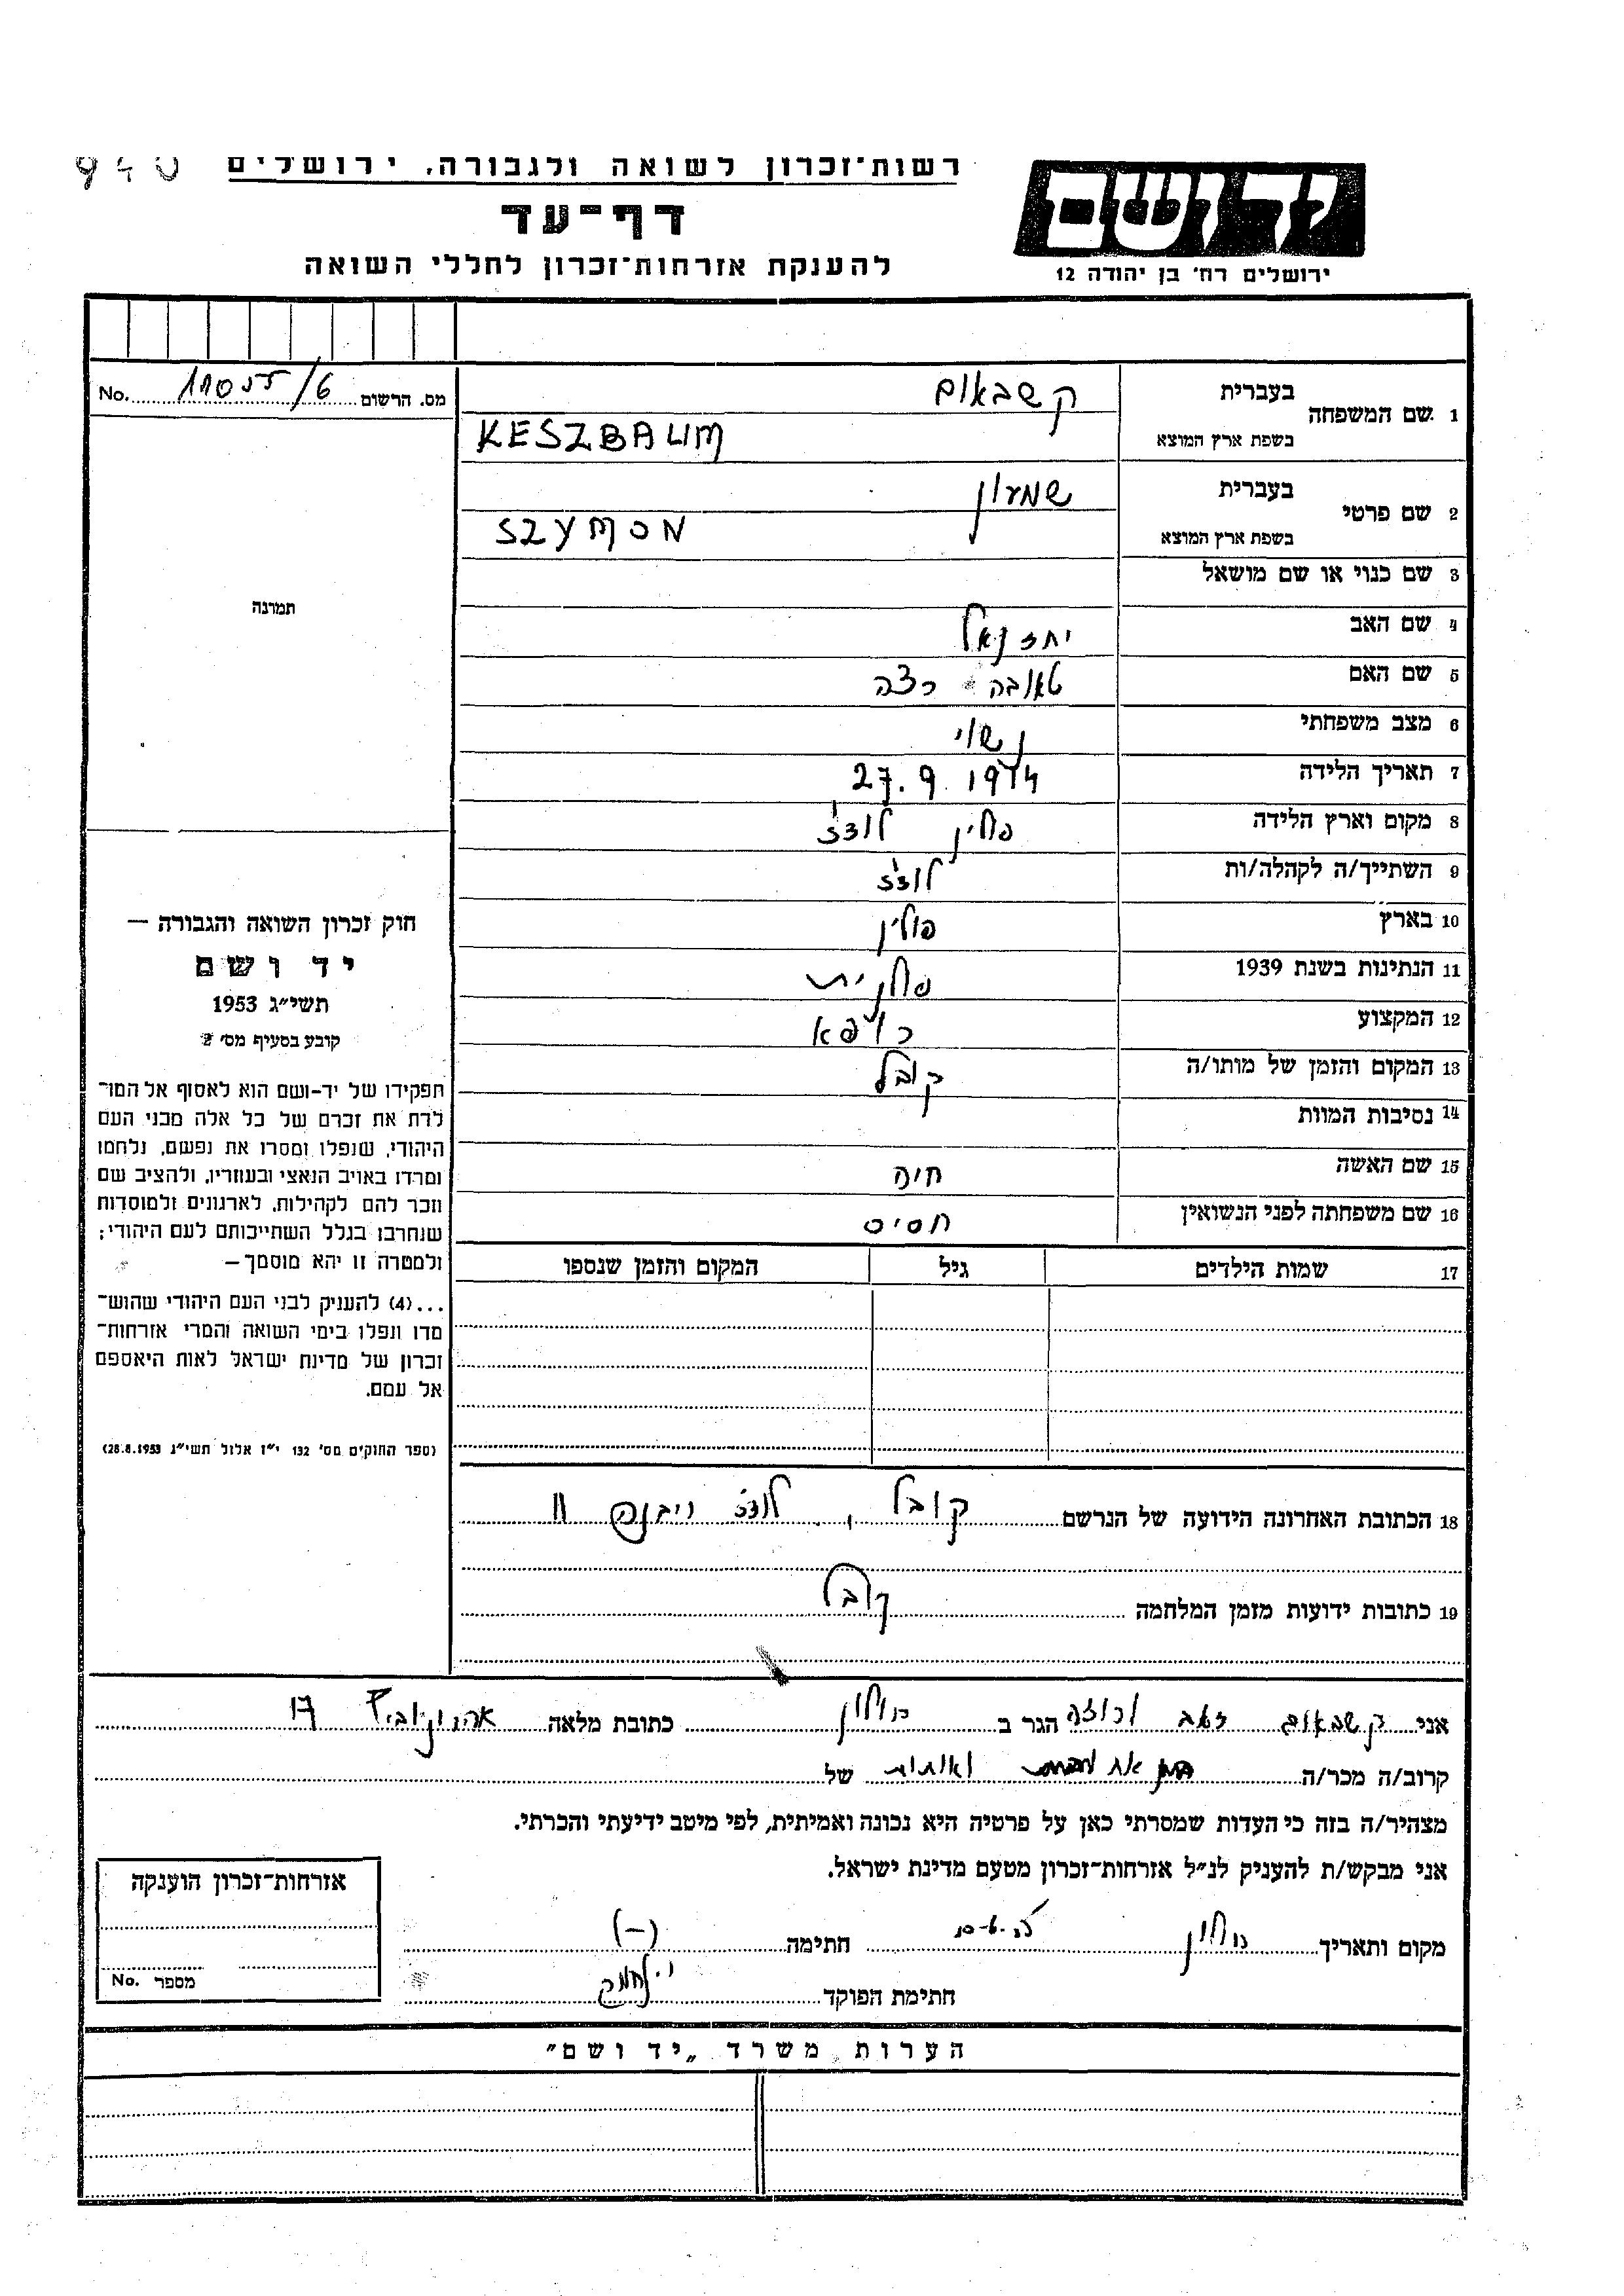 רשות־זכרון לשואה ולגבורה, ירושלים
940
דף־עד
להענקת אזרחות־זכרון לחללי השואה
יד ושם
ירושלים רח' בן יהודה 12
מס. הרשום No.
1 שם המשפחה בעברית קשבאום
בשפת ארץ המוצא KESZBAUM
2 שם פרטי בעברית שמעון
בשפת ארץ המוצא SZYMON
3 שם כנוי או שם מושאל
4 שם האב יחזקאל
5 שם האם טאובה
6 מצב משפחתי נשוי
7 תאריך הלידה 27.9.1914
8 מקום וארץ הלידה פולין לודז'
9 השתייך/ה לקהלה/ות לודז'
10 בארץ פולין
11 הנתינות בשנת 1939 פולנית
12 המקצוע רופא
13 המקום והזמן של מותו/ה קובל
14 נסיבות המוות
15 שם האשה חיה
16 שם משפחתה לפני הנשואין חסיס
17 שמות הילדים גיל המקום והזמן שנספו
תמונה
חוק זכרון השואה והגבורה —
יד ושם
תשי"ג 1953
קובע בסעיף מס' 2
תפקידו של יד-ושם הוא לאסוף אל המו־
לדת את זכרם של כל אלה מבני העם
היהודי, שנפלו ומסרו את נפשם, נלחמו
ומרדו באויב הנאצי ובעוזריו, ולהציב שם
וזכר להם לקהילות, לארגונים ולמוסדות
שנחרבו בגלל השתייכותם לעם היהודי;
ולמטרה זו יהא מוסמך —
...(4) להעניק לבני העם היהודי שהוש־
מדו ונפלו בימי השואה והמרי אזרחות־
זכרון של מדינת ישראל לאות היאספם
אל עמם.
(ספר החוקים מס' 132 י"ז אלול תשי"ג 28.8.1953)
18 הכתובת האחרונה הידועה של הנרשם קובל, לודז' 11
19 כתובות ידועות מזמן המלחמה קובל
אני קשבאום זאב הגר ב חולון כתובת מלאה 17
קרוב/ה מכר/ה של
מצהיר/ה בזה כי העדות שמסרתי כאן על פרטיה היא נכונה ואמיתית, לפי מיטב ידיעתי והכרתי.
אני מבקש/ת להעניק לנ"ל אזרחות־זכרון מטעם מדינת ישראל.
מקום ותאריך חולון חתימה (—)
חתימת הפוקד
אזרחות־זכרון הוענקה
מספר No.
הערות משרד „יד ושם"